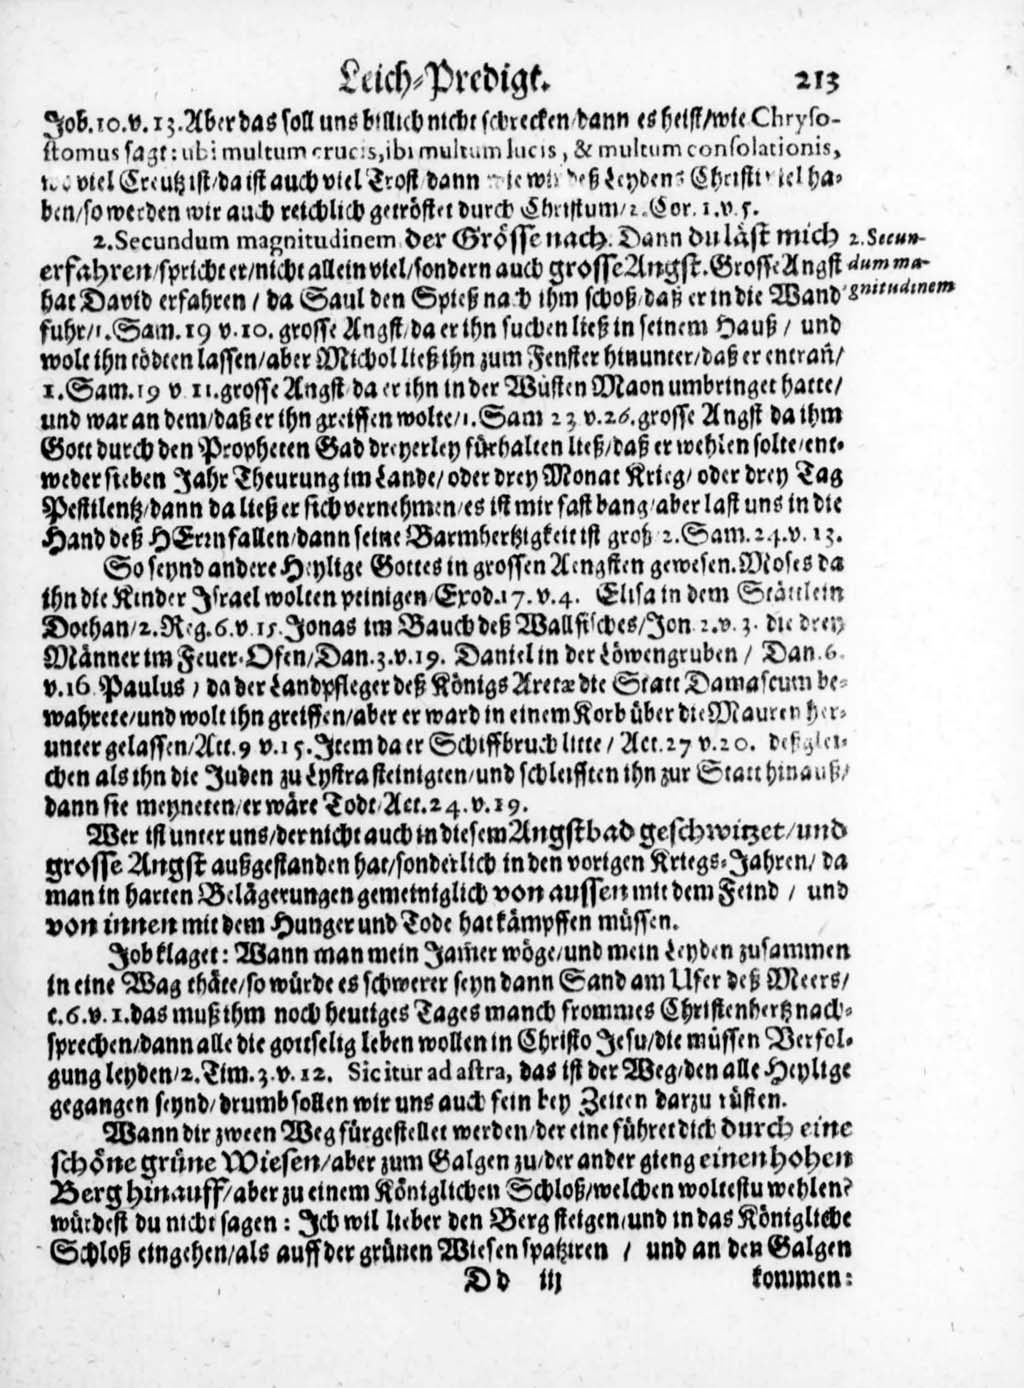 Leich-Predigt. 213
Job. 10. v. 13. Aber das soll uns billich nicht schrecken/dann es heist/wie Chryso-
stomus sagt: ubi multum crucis, ibi multum lucis, & multum consolationis,
wo viel Creutz ist/da ist auch viel Trost/dann wie wir deß Leydens Christi viel ha-
ben/so werden wir auch reichlich getröstet durch Christum/2. Cor. 1. v. 5.
2. Secundum magnitudinem, der Grösse nach. Dann du läst mich
2. Secun-
erfahren/spricht er/nicht allein viel/sondern auch grosse Angst. Grosse Angst
dum ma-
hat David erfahren / da Saul den Spieß nach ihm schoß/daß er in die Wand
gnitudinem
fuhr/1. Sam. 19 v. 10. grosse Angst/da er ihn suchen ließ in seinem Hauß / und
wolt ihn tödten lassen/aber Michol ließ ihn zum Fenster hinunter/daß er entrañ/
1. Sam. 19 v 11. grosse Angst/da er ihn in der Wüsten Maon umbringet hatte/
und war an dem/daß er ihn greiffen wolte/1. Sam 23 v. 26. grosse Angst da ihm
Gott durch den Propheten Gad dreyerley fürhalten ließ/daß er wehlen solte/ent-
weder sieben Jahr Theurung im Lande/ oder drey Monat Krieg/ oder drey Tag
Pestilentz/dann da ließ er sich vernehmen/es ist mir fast bang/aber last uns in die
Hand deß HErrn fallen/dann seine Barmhertzigkeit ist groß/2. Sam. 24. v. 13.
So seynd andere Heylige Gottes in grossen Aengsten gewesen. Moses da
ihn die Kinder Israel wolten peinigen/Exod. 17. v. 4. Elisa in dem Stättlein
Dothan/2. Reg. 6. v. 15. Jonas im Bauch deß Wallfisches/Jon. 2. v. 3. die drey
Männer im Feuer-Ofen/Dan. 3. v. 19. Daniel in der Löwengruben / Dan. 6.
v. 16 Paulus / da der Landpfleger deß Königs Aretæ die Statt Damascum be-
wahrete/und wolt ihn greiffen/aber er ward in einem Korb über die Mauren her-
unter gelassen/Act. 9 v. 15. Item da er Schiffbruch litte / Act. 27 v. 20. deßglei-
chen als ihn die Juden zu Lystra steinigten/und schleifften ihn zur Statt hinauß/
dann sie meyneten/er wäre Todt/Act. 24. v. 19.
Wer ist unter uns/der nicht auch in diesem Angstbad geschwitzet/und
grosse Angst außgestanden hat/sonderlich in den vorigen Kriegs-Jahren/ da
man in harten Belägerungen gemeiniglich von aussen mit dem Feind / und
von innen mit dem Hunger und Tode hat kämpffen müssen.
Job klaget: Wann man mein Jam̃er wöge/und mein Leyden zusammen
in eine Wag thäte/so würde es schwerer seyn dann Sand am Ufer deß Meers/
c. 6. v. 1. das muß ihm noch heutiges Tages manch frommes Christenhertz nach-
sprechen/dann alle die gottselig leben wollen in Christo Jesu/die müssen Verfol-
gung leyden/2. Tim. 3. v. 12. Sic itur ad astra, das ist der Weg/den alle Heylige
gegangen seynd/drumb sollen wir uns auch fein bey Zeiten darzu rüsten.
Wann dir zween Weg fürgestellet werden/der eine führet dich durch eine
schöne grüne Wiesen/aber zum Galgen zu/der ander gieng einen hohen
Berg hinauff/aber zu einem Königlichen Schloß/welchen woltestu wehlen?
würdest du nicht sagen: Ich wil lieber den Berg steigen/und in das Königliche
Schloß eingehen/als auff der grünen Wiesen spatziren / und an den Galgen
Dd iij kommen: